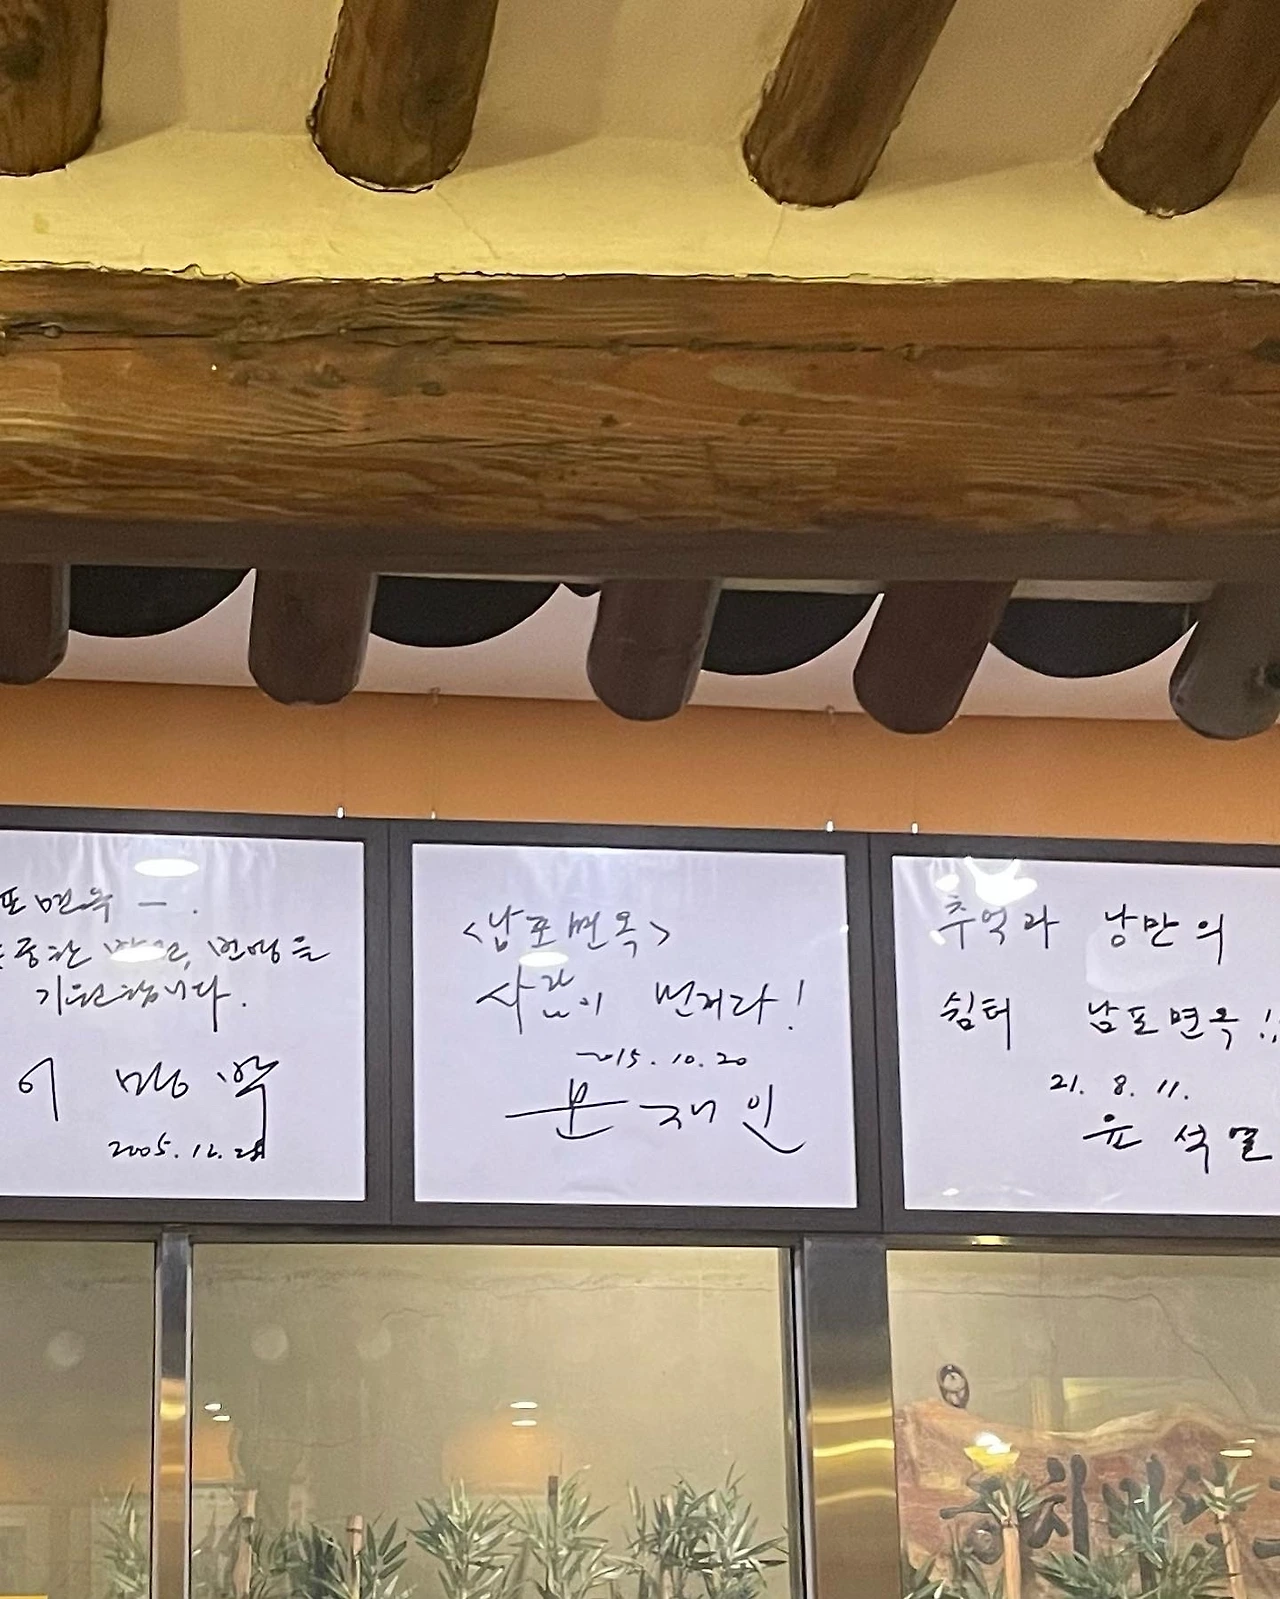 포면옥 —.
중한 번영을
기원합니다.
이명박
2005.12.28
<남포면옥>
사람이 먼저다!
2015.10.20
문재인
추억과 낭만의
쉼터 남포면옥!!
21. 8. 11.
윤석열